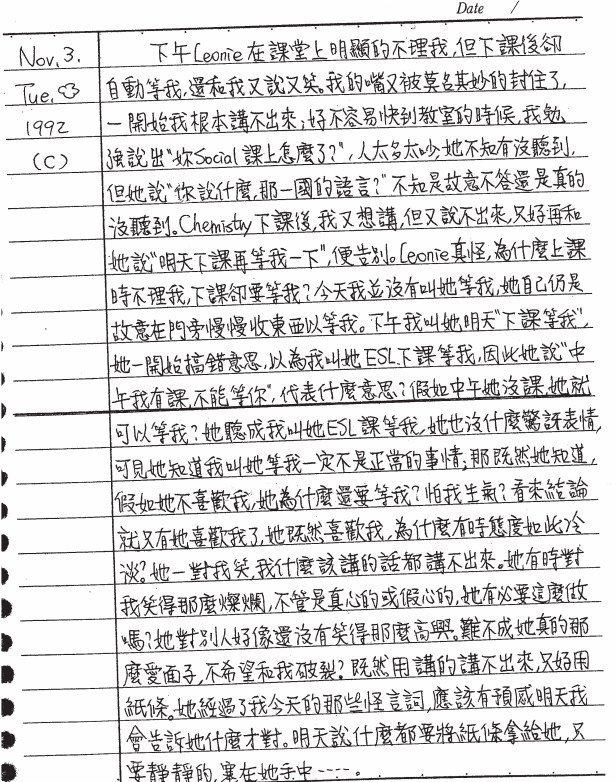 Date /
Nov. 3. 下午Leonie在課堂上明顯的不理我,但下課後卻
Tue. 自動等我,還和我又說又笑。我的嘴又被莫名其妙的封住了,
1992 一開始我根本講不出來;好不容易快到教室的時候,我勉
(C) 強說出"妳Social課上怎麼了?",人太多太吵她不知有沒聽到,
但她說"你說什麼,那一國的語言?"不知是故意不答還是真的
沒聽到。Chemistry下課後,我又想講,但又說不出來,只好再和
她說"明天下課再等我一下",便告別。Leonie真怪,為什麼上課
時不理我,下課卻要等我?今天我並沒有叫她等我,她自己仍是
故意在門旁慢慢收東西以等我。下午我叫她明天"下課等我",
她一開始搞錯意思,以為我叫她ESL下課等我,因此她說"中
午我有課,不能等你",代表什麼意思?假如中午她沒課,她就
可以等我?她聽成我叫她ESL課等我,她也沒什麼驚訝表情,
可見她知道我叫她等我一定不是正常的事情,那既然她知道,
假如她不喜歡我,她為什麼還要等我?怕我生氣?看來結論
就只有她喜歡我了,她既然喜歡我,為什麼有時態度如此冷
淡?她一對我笑,我什麼該講的話都講不出來。她有時對
我笑得那麼燦爛,不管是真心的或假心的,她有必要這麼做
嗎?她對別人好像還沒有笑得那麼高興。難不成她真的那
麼愛面子,不希望和我破裂?既然用講的講不出來,只好用
紙條。她經過了我今天的那些怪言詞,應該有預感明天我
會告訴她什麼才對。明天說什麼都要將紙條拿給她,又
要靜靜的,塞在她手中----。